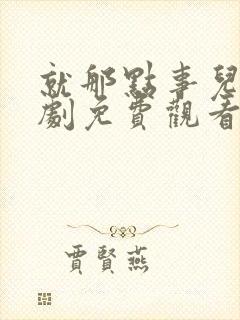 就那點事兒
劇免費觀看
賈賢燕